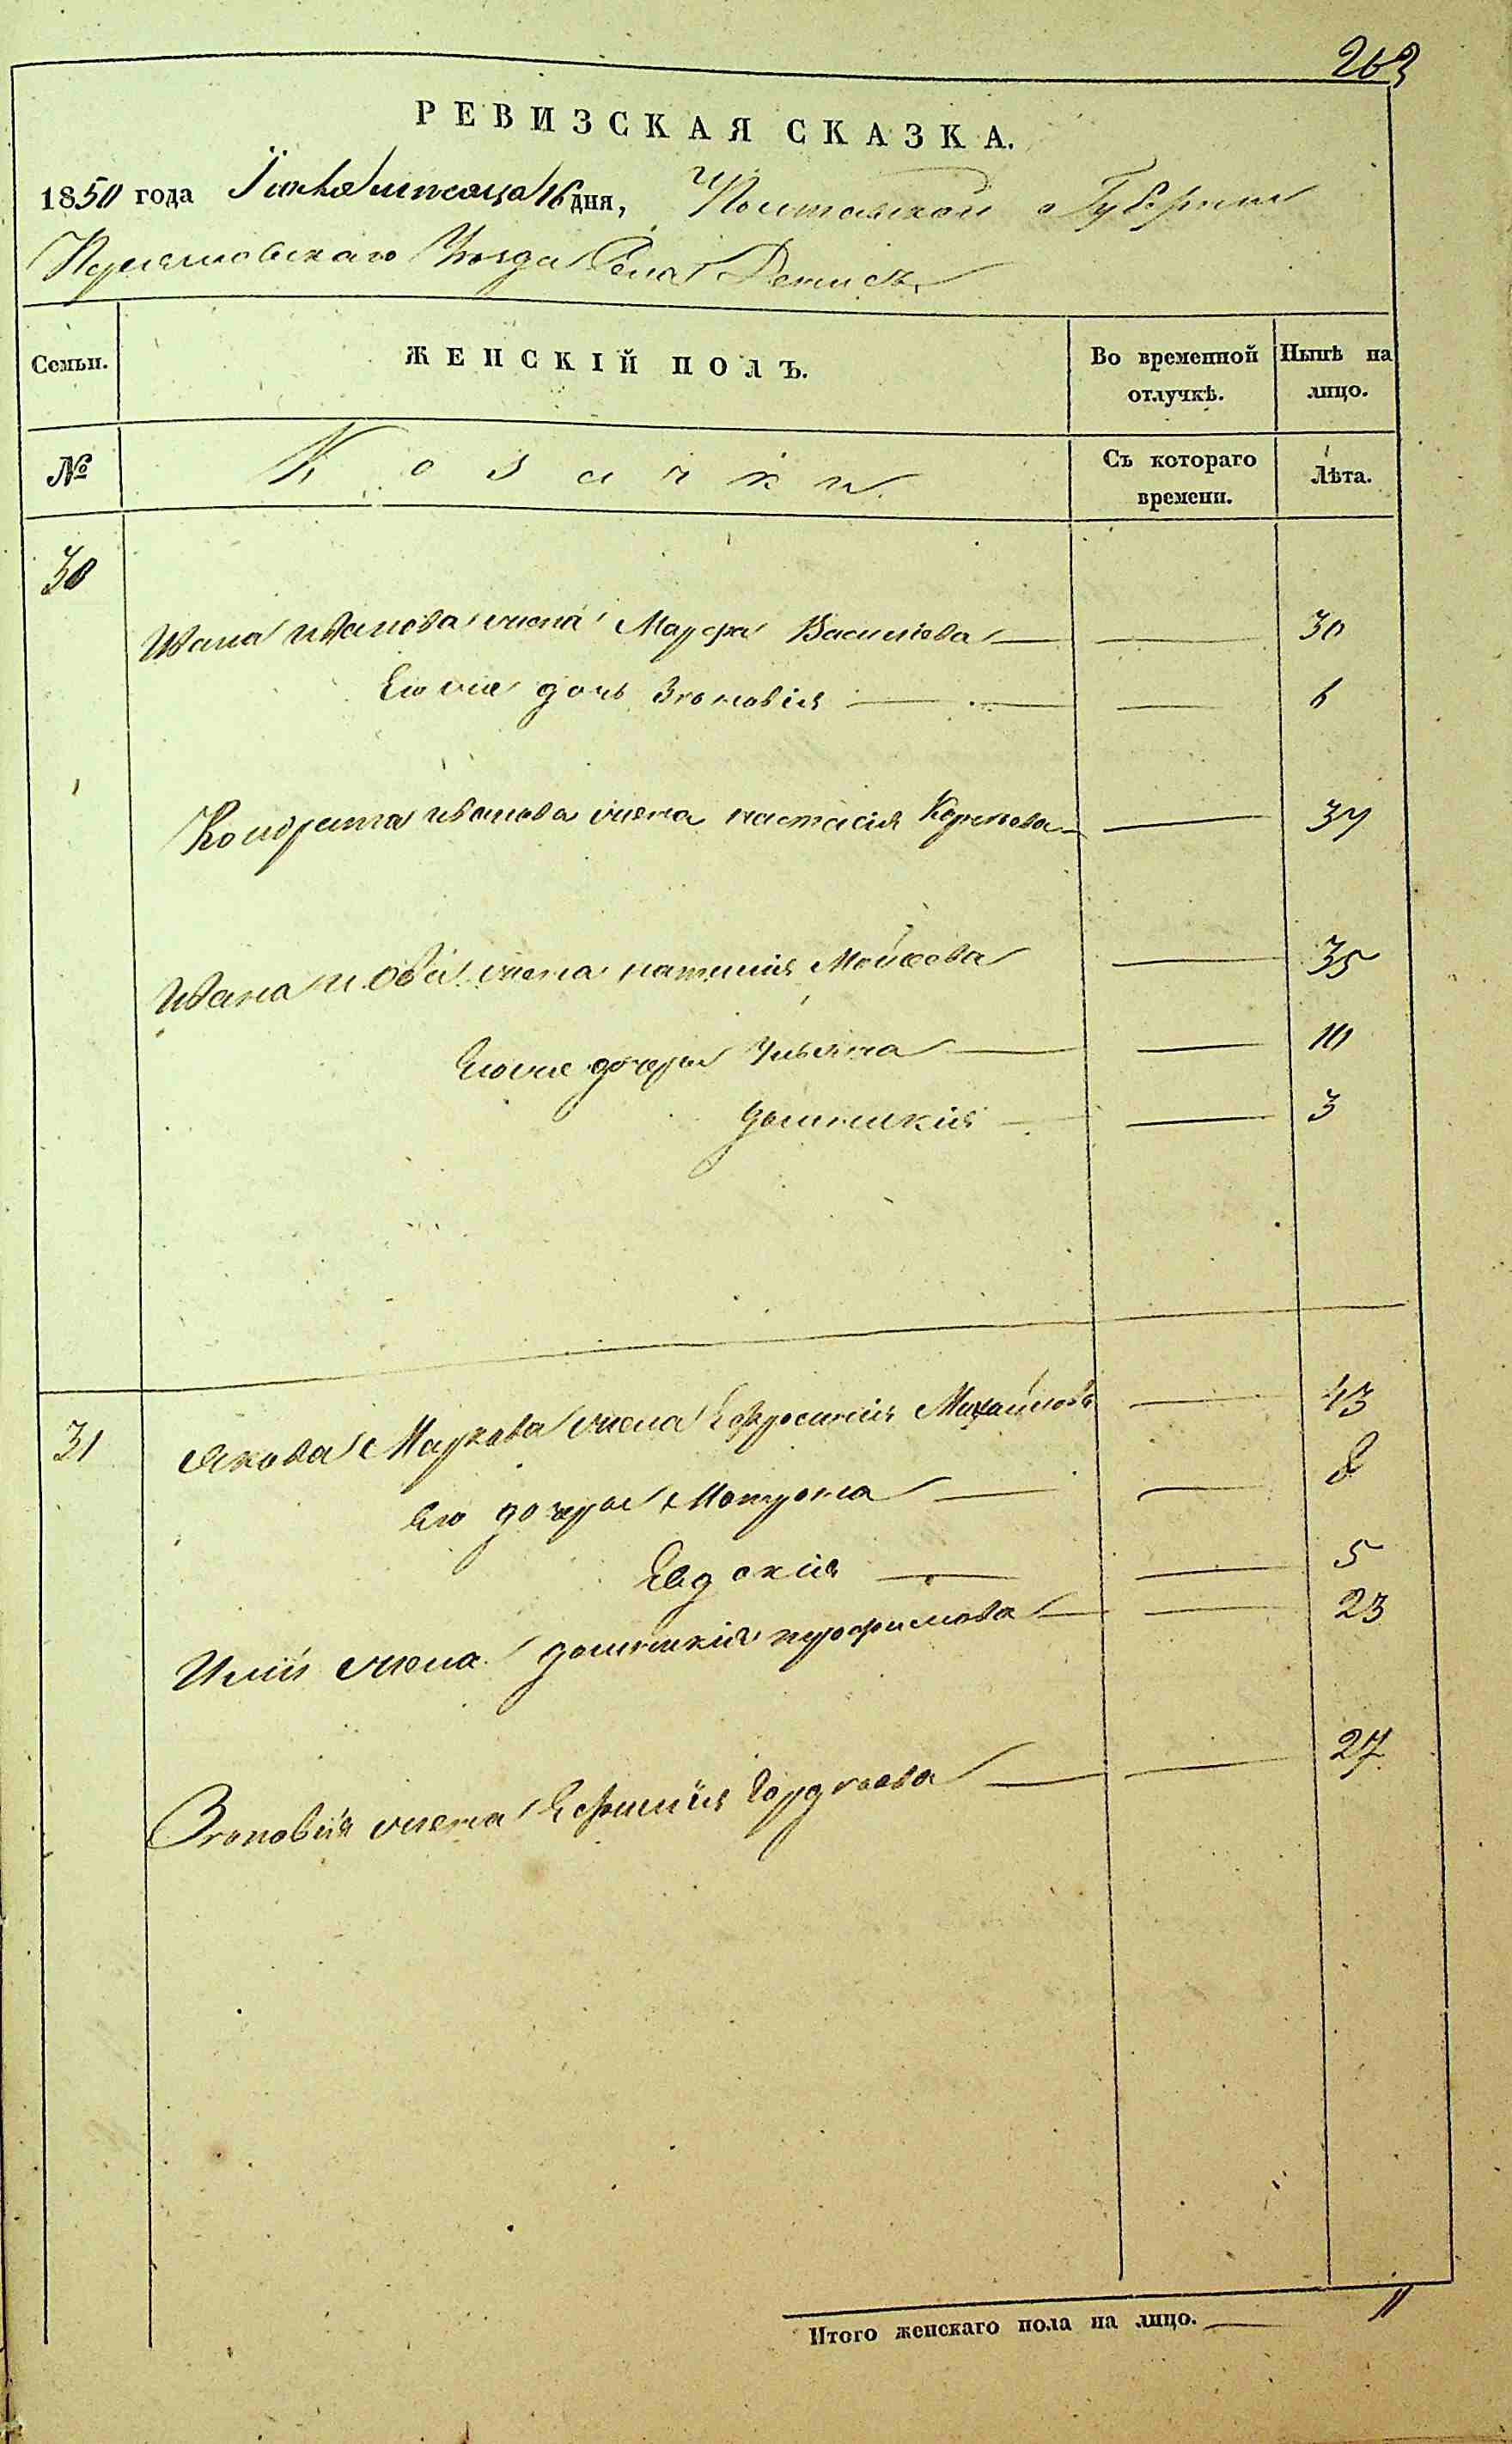 263
РЕВИЗСКАЯ СКАЗКА.
1850 года Іюля месяца 16 дня, Полтавской Губернии
Уезда Села Денисъ
Семьи. ЖЕНСКІЙ ПОЛЪ. Во временной отлучкѣ. Нынѣ на лицо.
№ Козачки Съ котораго времени. Лѣта.
30
Ивана иванова жена Мавра Василiева — — 30
Его же дочь Зѣновія — — 6
Кондрата иванова жена настасія Карпова — — 37
Ивана жена наталія Мойсеева — 35
Его же дочеры Ульяна — — 10
домникія — — 3
31 Якова Маркова жена Ефросинія Михайлова — 43
Его дочеры Мотрона — — 8
Евдокія — — 5
Иліи жена домникія трофимова — — 23
Зѣновія жена Ефимия Гордеева — — 27
Итого женскаго пола на лицо. — 11